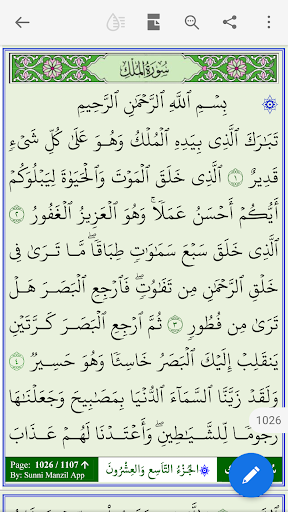 سُورَةُ المُلْكِ
بِسْمِ ٱللَّهِ ٱلرَّحْمَٰنِ ٱلرَّحِيمِ
تَبَٰرَكَ ٱلَّذِى بِيَدِهِ ٱلْمُلْكُ وَهُوَ عَلَىٰ كُلِّ شَىْءٍ
قَدِيرٌ ١ ٱلَّذِى خَلَقَ ٱلْمَوْتَ وَٱلْحَيَوٰةَ لِيَبْلُوَكُمْ
أَيُّكُمْ أَحْسَنُ عَمَلًا ۚ وَهُوَ ٱلْعَزِيزُ ٱلْغَفُورُ ٢
ٱلَّذِى خَلَقَ سَبْعَ سَمَٰوَٰتٍ طِبَاقًا ۖ مَّا تَرَىٰ فِى
خَلْقِ ٱلرَّحْمَٰنِ مِن تَفَٰوُتٍ ۖ فَٱرْجِعِ ٱلْبَصَرَ هَلْ
تَرَىٰ مِن فُطُورٍ ٣ ثُمَّ ٱرْجِعِ ٱلْبَصَرَ كَرَّتَيْنِ
يَنقَلِبْ إِلَيْكَ ٱلْبَصَرُ خَاسِئًا وَهُوَ حَسِيرٌ ٤
وَلَقَدْ زَيَّنَّا ٱلسَّمَآءَ ٱلدُّنْيَا بِمَصَٰبِيحَ وَجَعَلْنَٰهَا
رُجُومًا لِّلشَّيَٰطِينِ ۖ وَأَعْتَدْنَا لَهُمْ عَذَابَ
1026
Page: 1026 / 1107 ↑
By: Sunni Manzil App
الجُزءُ التَّاسِعُ وَالعِشْرُونَ